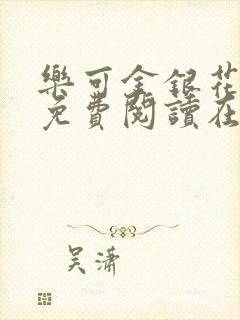 樂可金銀花
免費閱讀在
吴潇